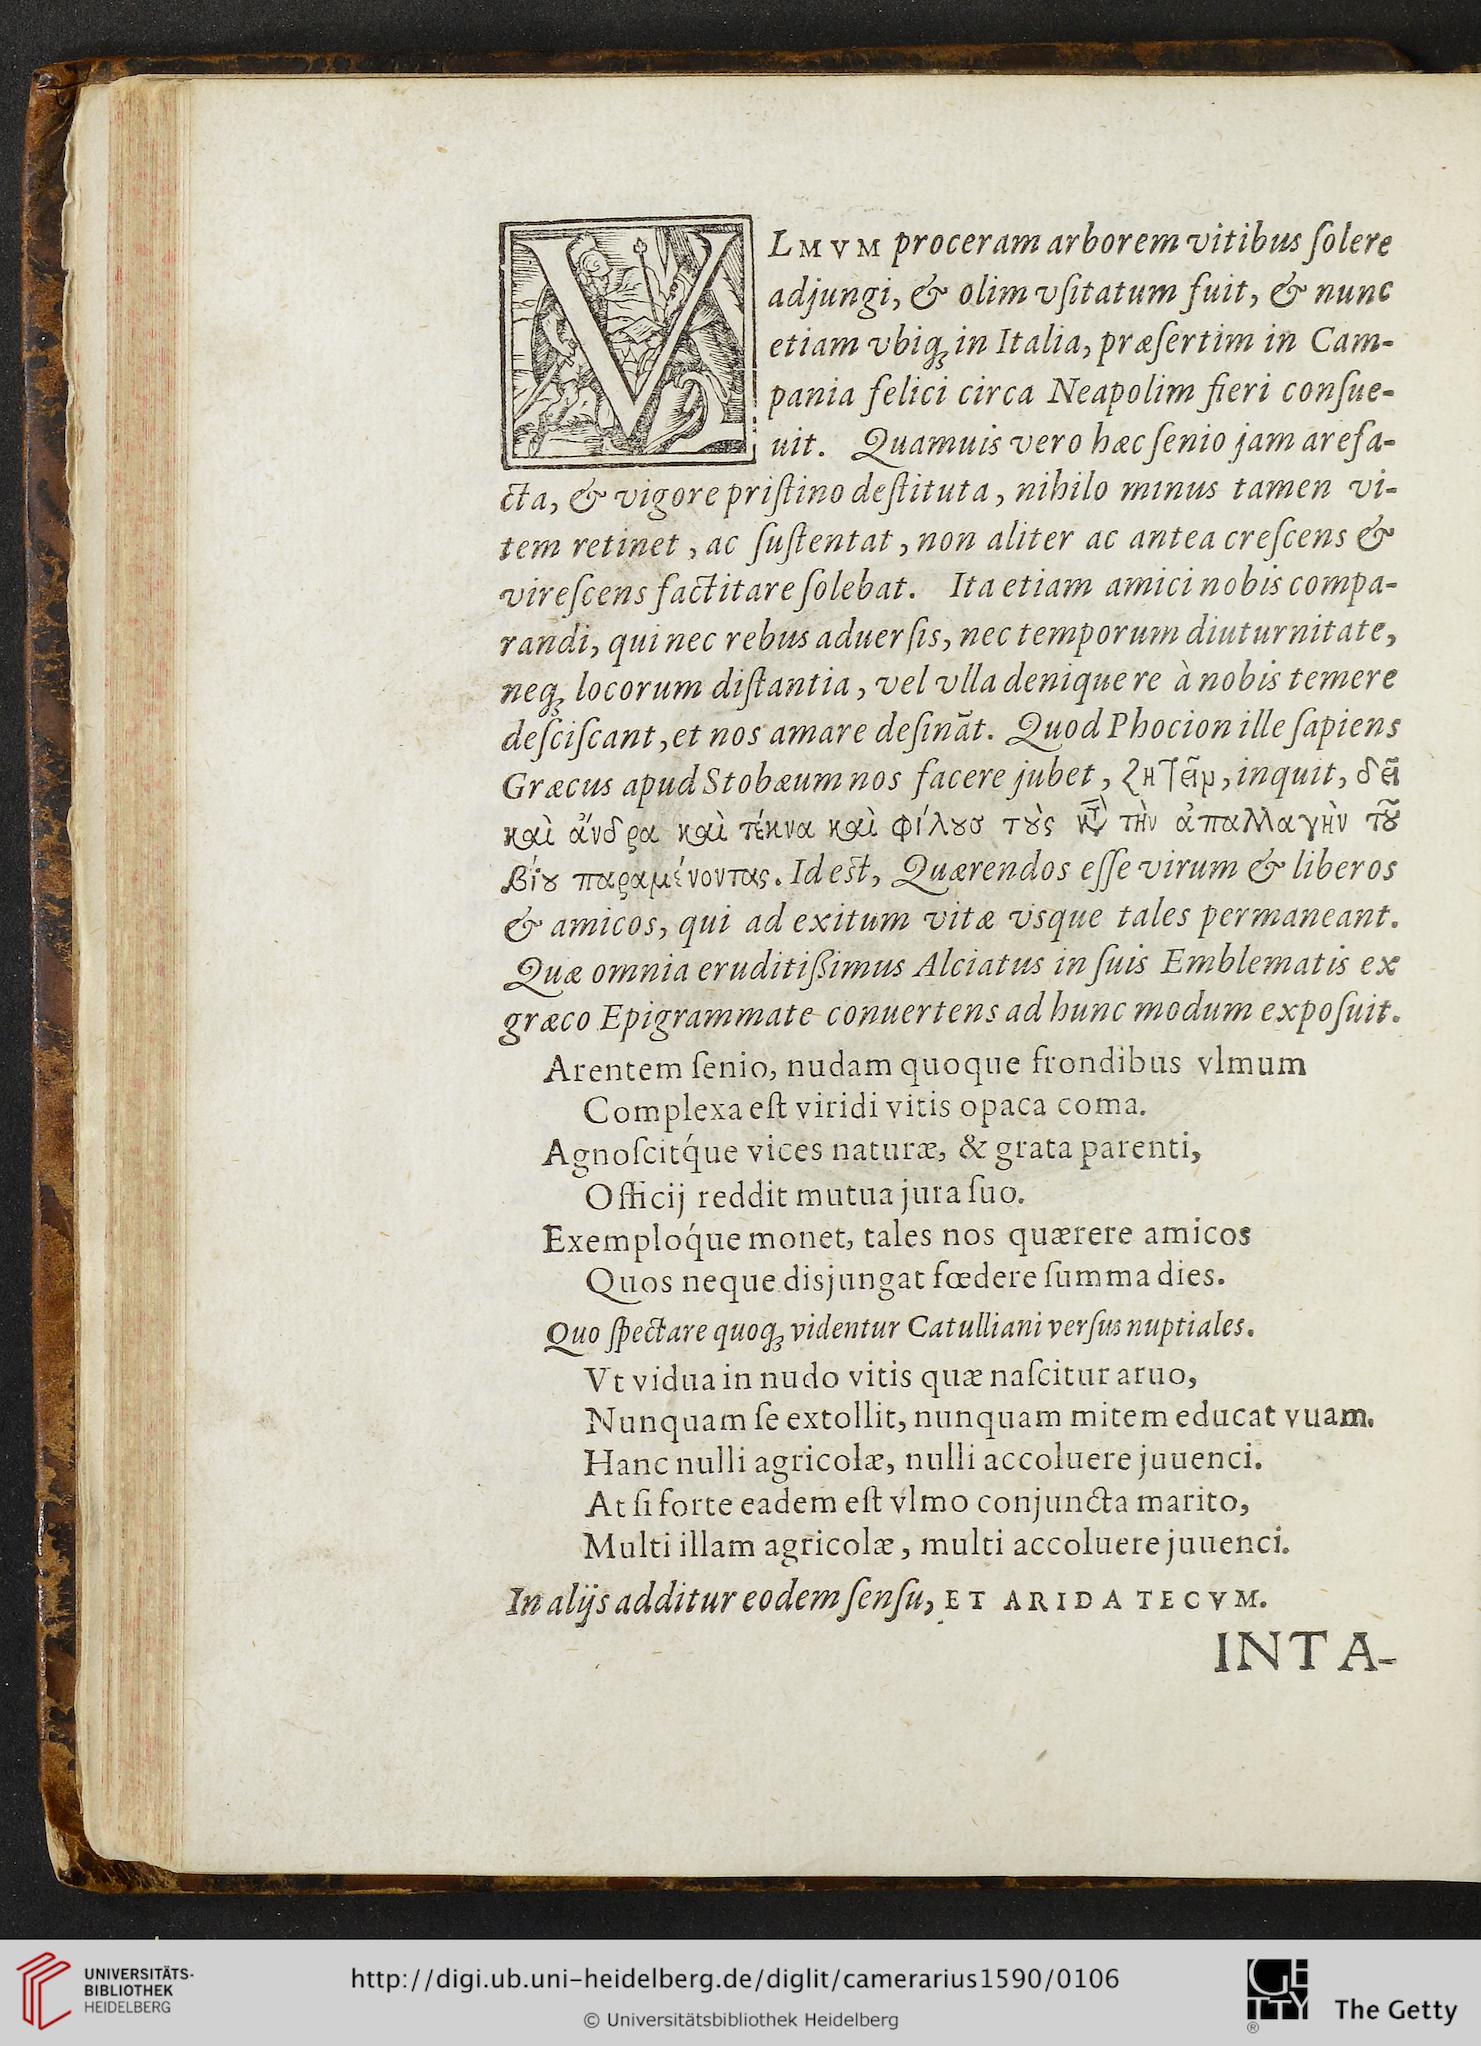 VLMVM proceram arborem vitibus ſolere
adjungi, & olim vſitatum fuit, & nunc
etiam vbiq; in Italia, præſertim in Cam-
pania felici circa Neapolim fieri conſue-
uit. Quamuis vero hæc ſenio jam arefa-
cta, & vigore priſtino deſtituta, nihilo minus tamen vi-
tem retinet, ac ſuſtentat, non aliter ac antea creſcens &
vireſcens factitare ſolebat. Ita etiam amici nobis compa-
randi, qui nec rebus aduerſis, nec temporum diuturnitate,
neq; locorum diſtantia, vel vlla denique re à nobis temere
deſciſcant, et nos amare deſinãt. Quod Phocion ille ſapiens
Græcus apud Stobæum nos facere jubet, ζητεῖν, inquit, δεῖ
καὶ ἄνδρα καὶ τέκνα καὶ φίλους τοὺς καὶ τὴν ἀπαλλαγὴν τοῦ
βίου παραμένοντας. Id est, Quærendos eſſe virum & liberos
& amicos, qui ad exitum vitæ vsque tales permaneant.
Quæ omnia eruditißimus Alciatus in ſuis Emblematis ex
græco Epigrammate conuertens ad hunc modum expoſuit.
Arentem ſenio, nudam quoque frondibus vlmum
Complexa eſt viridi vitis opaca coma.
Agnoſcitq́ue vices naturæ, & grata parenti,
Officij reddit mutua jura ſuo.
Exemploq́ue monet, tales nos quærere amicos
Quos neque disjungat fœdere ſumma dies.
Quo ſpectare quoq; videntur Catulliani verſus nuptiales.
Vt vidua in nudo vitis quæ naſcitur aruo,
Nunquam ſe extollit, nunquam mitem educat vuam.
Hanc nulli agricolæ, nulli accoluere juuenci.
At ſi forte eadem eſt vlmo conjuncta marito,
Multi illam agricolæ, multi accoluere juuenci.
In alijs additur eodem ſenſu, ET ARIDA TECVM.
INTA-
UNIVERSITÄTS-
BIBLIOTHEK
HEIDELBERG
http://digi.ub.uni-heidelberg.de/diglit/camerarius1590/0106
© Universitätsbibliothek Heidelberg
GETTY
®
The Getty